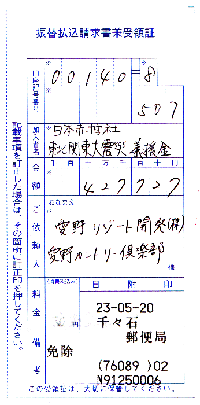 振替払込請求書兼受領証
00140=8
507
加入者名
日本赤十字社
東北関東大震災義援金
金額
千百十万千百十円
427727
ご依頼人
愛野リゾート開発(株)
愛野カントリー倶楽部
様
料金
日附印
23-05-20
千々石
郵便局
備考
免除
(76089 )02
N91250006
記載事項を訂正した場合は、その箇所に訂正印を押してください。
この受領証は、大切に保管してください。